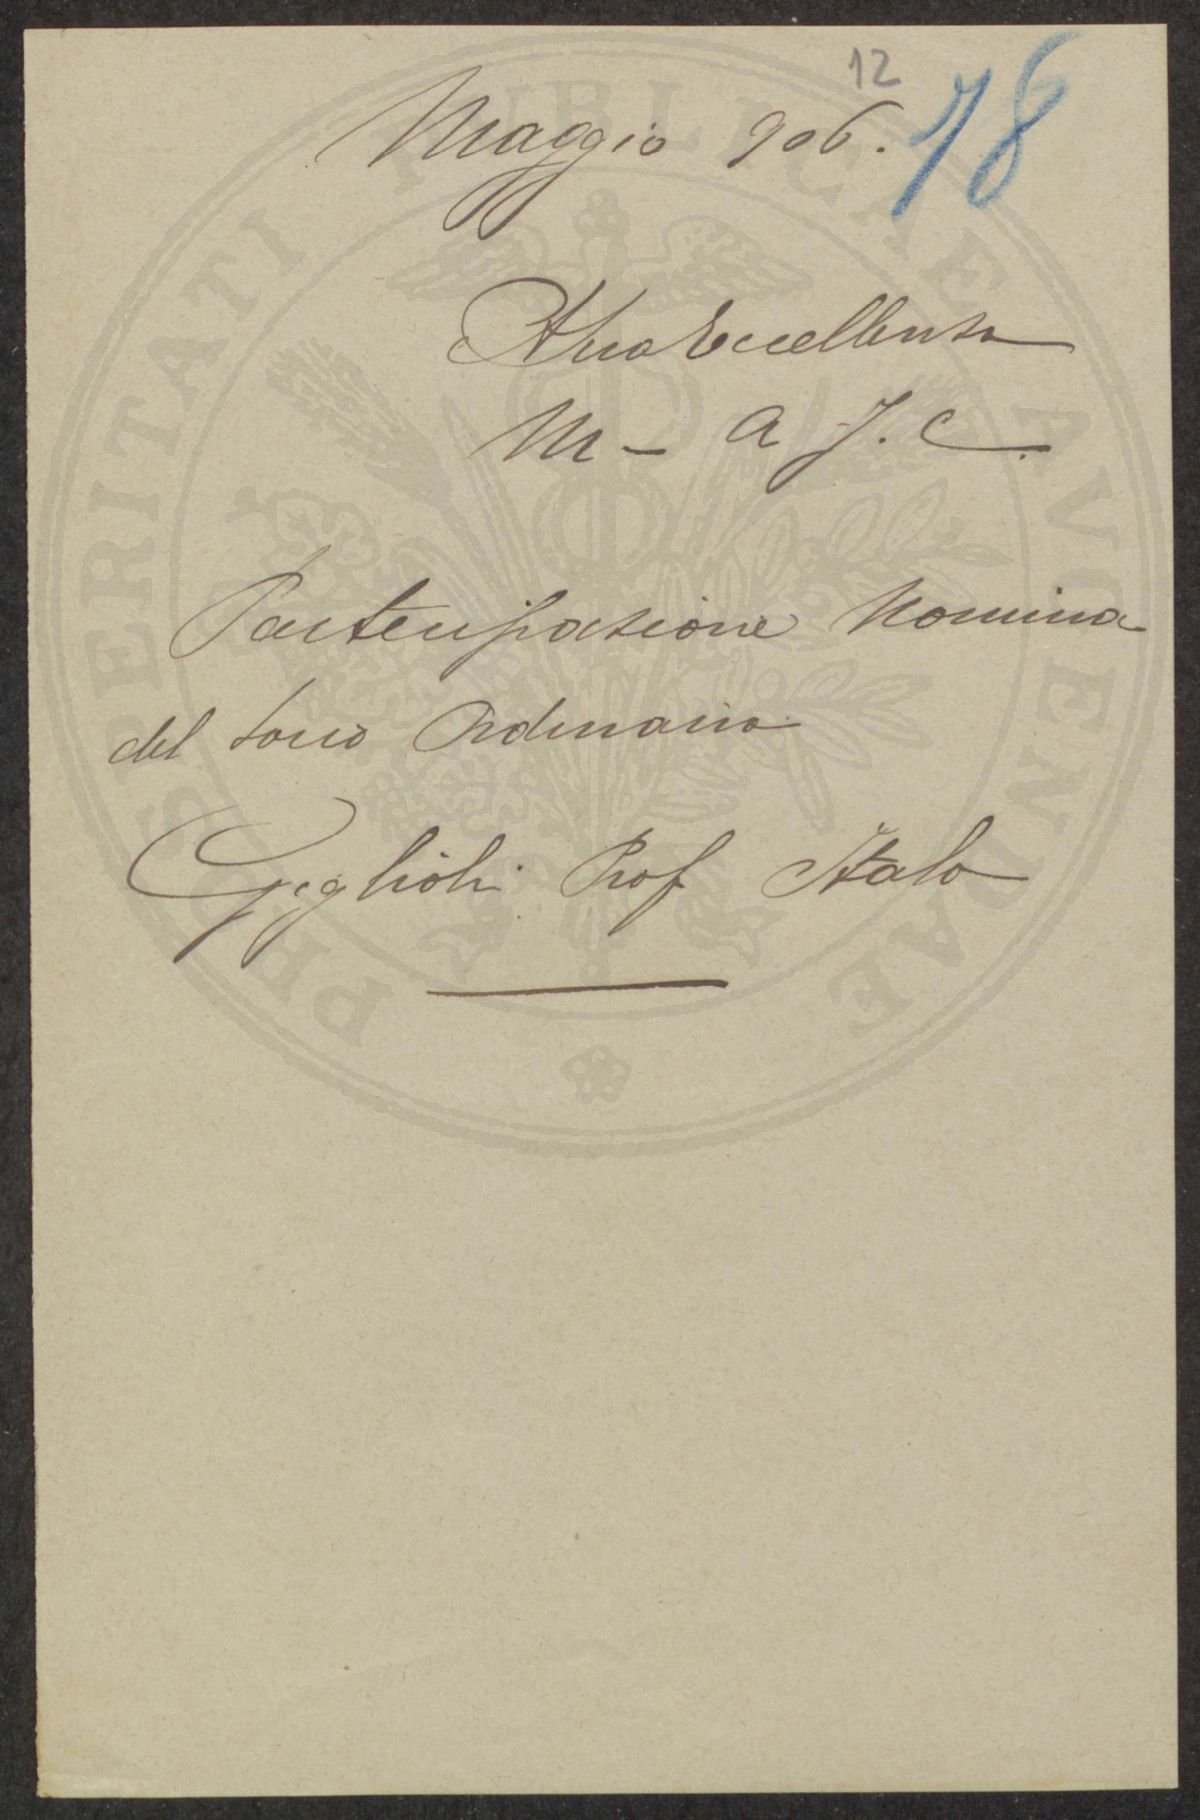 12
Maggio 906. 78
A Sua Eccellenza
M - A J. C.
Partecipazione Nomina
del Socio Ordinario
Giglioli Prof Italo
PROSPERITATI PUBLICAE AVGENDAE